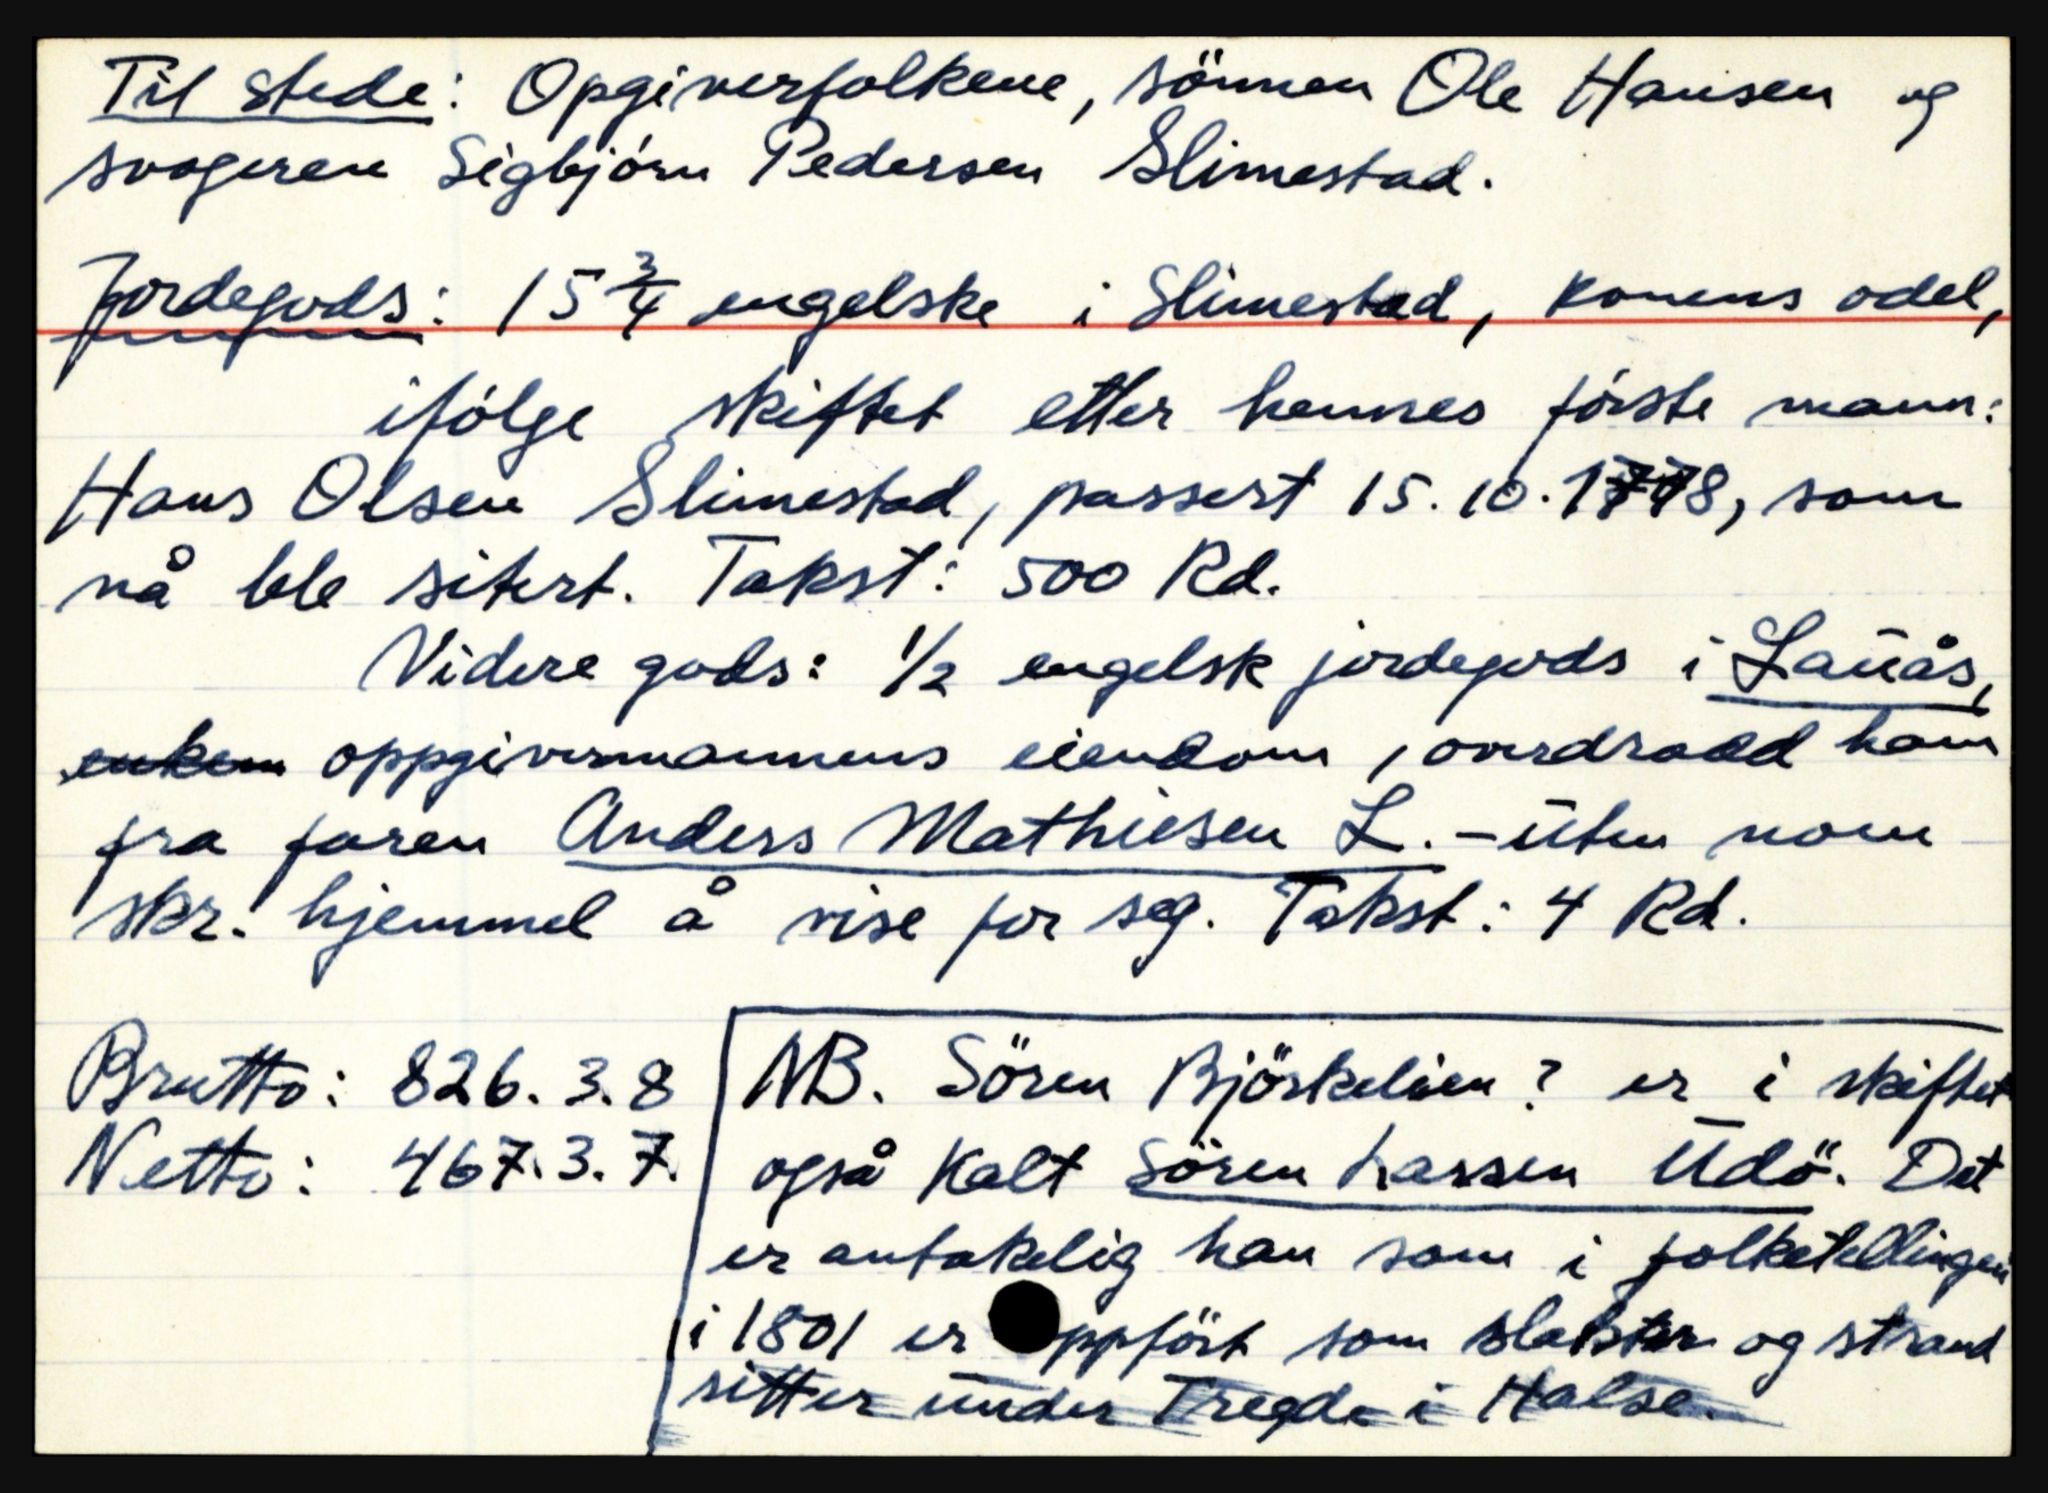 Til stede: Opgiverfolkene, sönnen Ole Hansen og
svogeren Sigbjörn Pedersen Slimestad.
Jordegods: 15 3/4 engelske i Slimestad, konens odel,
ifölge skiftet etter hennes förste mann:
Hans Olsen Slimestad, passert 15.10.1778, som
nå ble sitert. Takst: 500 Rd.
Videre gods: 1/2 engelsk jordegods i Lauås,
enkem oppgivermannens eiendom, overdradd ham
fra faren Anders Mathiesen L. - uten noen
skr. hjemmel å vise for seg. Takst: 4 Rd.
Brutto: 826. 3. 8
Netto: 467. 3. 7.
NB. Sören Björkelien? er i skiftet
også kalt Sören Larssen Udö. Det
er antakelig han som i folketellingen
i 1801 er oppfört som og strand
sitter under Tregde i Halse.